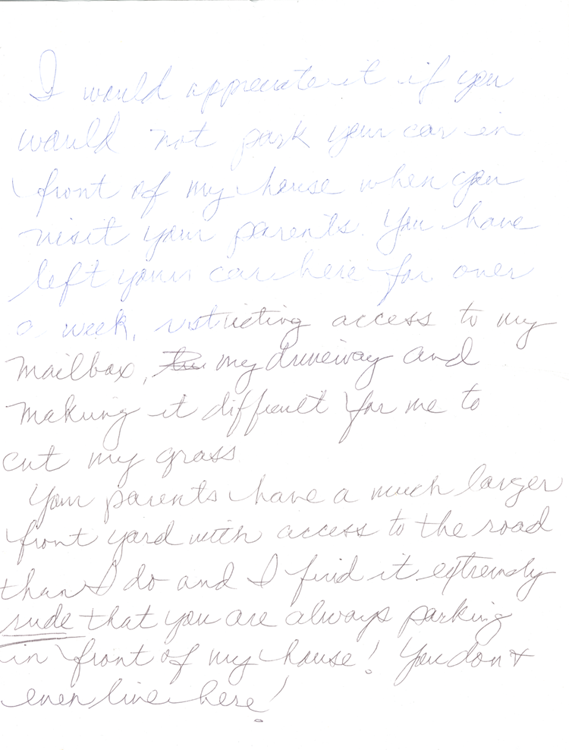 I would appreciate it if you
would not park your car in
front of my house when you
visit your parents. You have
left your car here for over
a week, restricting access to my
mailbox, my driveway and
making it difficult for me to
cut my grass
Your parents have a much larger
front yard with access to the road
than I do and I find it extremely
rude that you are always parking
in front of my house! You don't
even live here!